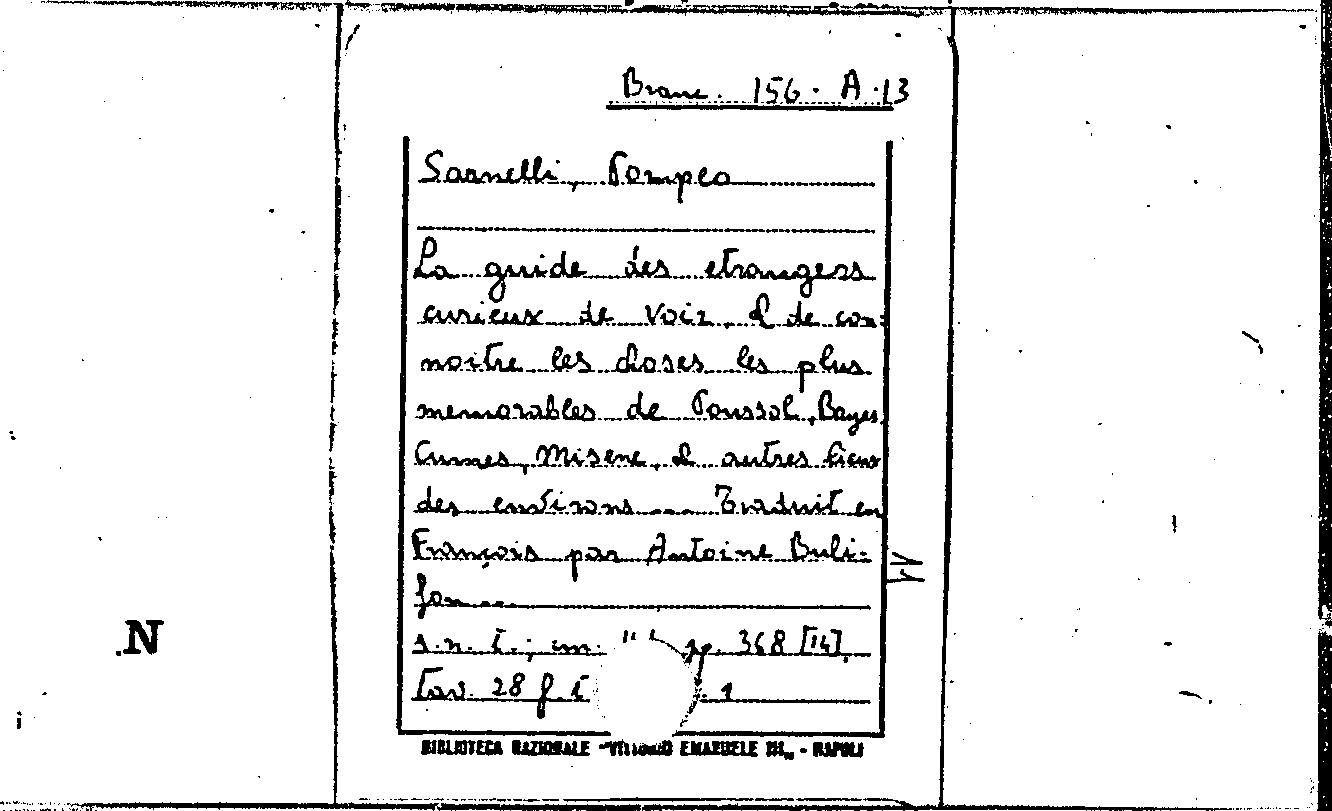 Branc. 156. A. 13
Sarnelli, Pompeo
La guide des etrangers
curieux de voir, & de con=
noitre les choses les plus
memorables de Poussol, Bayes,
Cumes, Misene, & autres lieux
des environs .... Traduit en
François par Antoine Buli=
fon ....
s.n.t.; cm. pp. 368 [14],
Tav. 28 f.t . 1
BIBLIOTECA NAZIONALE "VITTORIO EMANUELE III" - NAPOLI
N